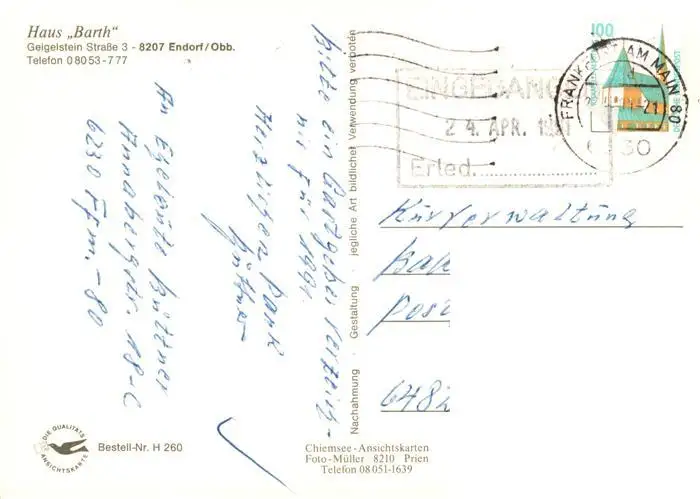 Haus „Barth"
Geigelstein Straße 3 - 8207 Endorf/Obb.
Telefon 08053-777
Bitte ein Gastgeberverzeich-
nis für 1991.
Herzlichen Dank
Büttner
An Egelente Büttner
Annabergstr. 18-C
6230 Ffm. - 80
Bestell-Nr. H 260
DIE QUALITÄTS
ANSICHTSKARTE
Nachahmung · Gestaltung · jegliche Art bildlicher Verwendung verboten
Chiemsee-Ansichtskarten
Foto-Müller 8210 Prien
Telefon 08051-1639
100
DEUTSCHE
FRANKFURT AM MAIN 80
EINGEGANG
24. APR. 1991
Erled.
Kurverwaltung
Bad
Post
648